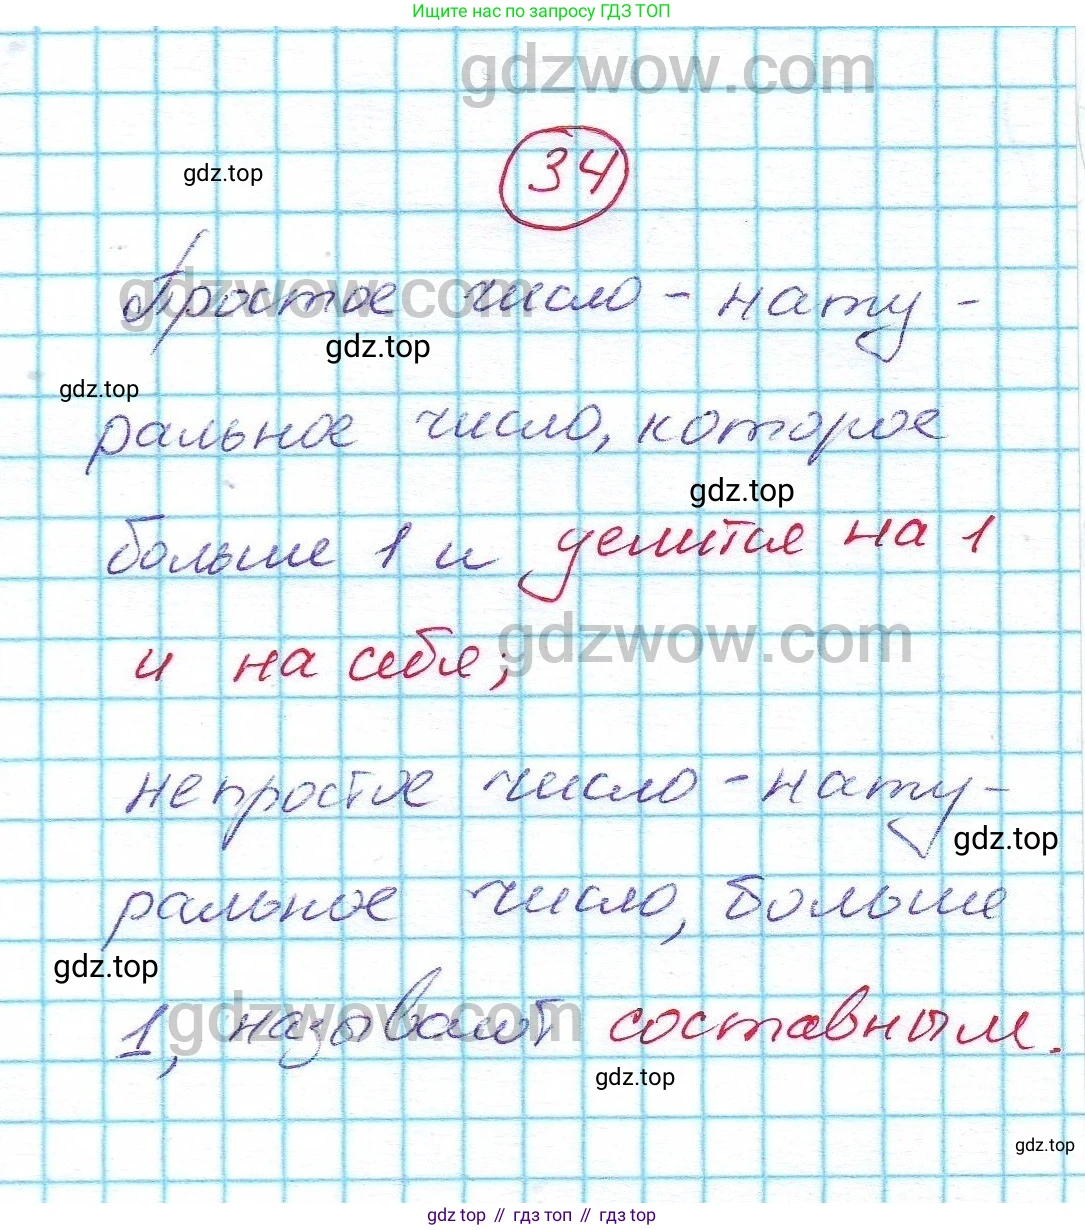 Ищите нас по запросу ГДЗ ТОП
gdzwow.com
34
gdz.top
Простое число - нату -
gdzwow.com
gdz.top
gdz.top
ральное число, которое
gdz.top
больше 1 и делится на 1
gdzwow.com
и на себя;
непростое число - нату -
gdz.top
ральное число, больше
gdz.top
1, называют составным.
gdzwow.com
gdz.top
gdz.top
gdz.top // гдз топ // гдз top